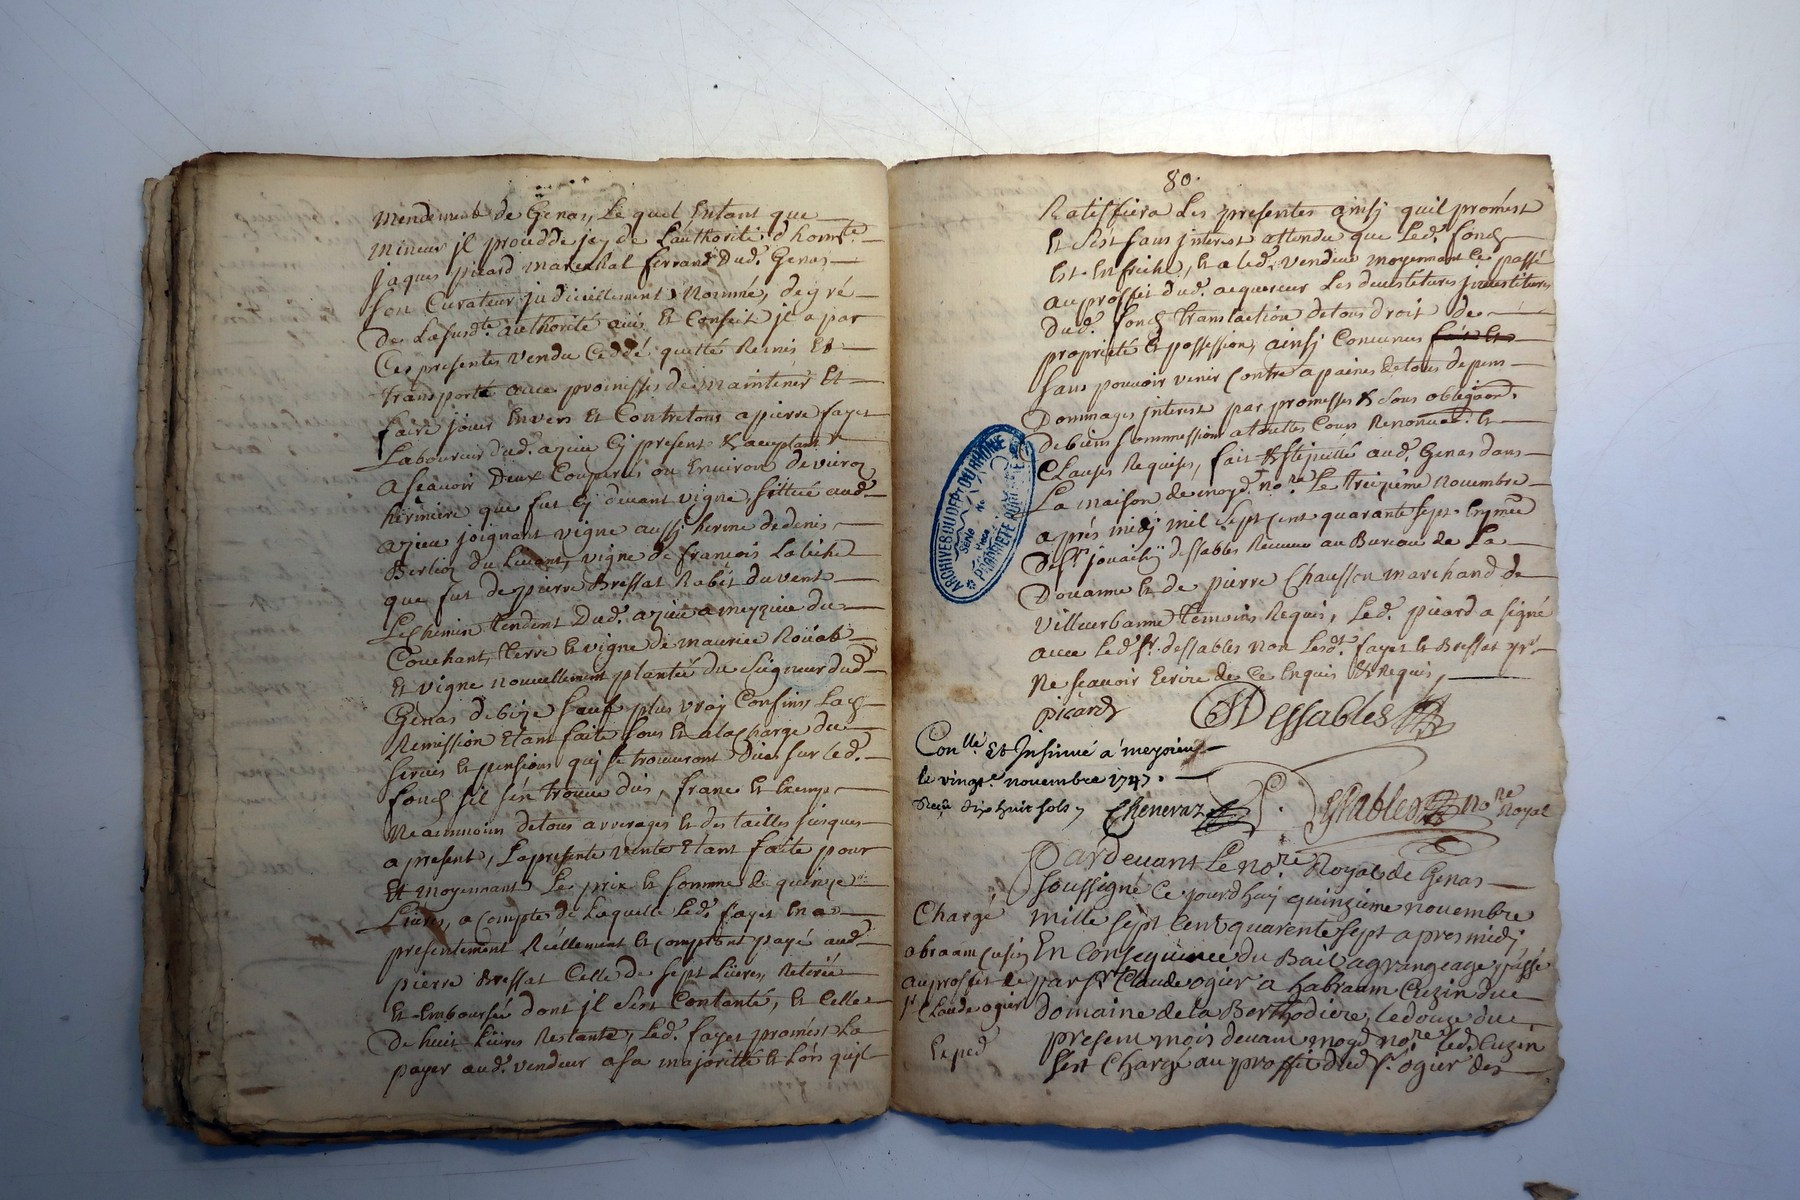 Mendement de Genas, Le quel Entant que
mineur jl proceddé jcy de Lauthorité d'hon^te
Jaques picard marechal ferrand Dud. Genas
son Curateur judiciellement Nommé, de gré
De Lasusd^te authorité avis Et Conseil jl a par
Ces presentes vendu Ceddé quitté Remis Et
transporté avec promesses de maintenir Et
faire jouir Envers Et Contretous a pierre fayet
Laboureur dud. azieu Cy present & aceptant
ascavoir Deux Couparés ou Environ de
hermiere que fut Cy devant vigne, sittué aud.
azieu joignant vigne aussy herme de denis
Berlioz du Levant, vigne de francois Labiche
que fut de pierre Bressat Rabêt du vent
Le Chemin tendent Dud. azieu a meyzieu du
Couchant, terre & vigne de maurice
Et vigne nouvellement plantée du Seigneur dud.
Genas debize sauf plus vray Confins Lad.
Remission Etant faite sous Et ala Charge du
servis Et pensions qui se trouveront Dües sur Led.
fond sil s'en trouve dûs, franc Et Exemp
Neanmoins detous arrerages Et des tailles jusques
a present, La presente vente Etant faite pour
Et moyennant Le prix & somme de quinze
Livres, a Compte de Laquelle Led. fayet En a
presentement Réellement Et Comptant payé aud.
pierre Bressat Celle de sept Livres, Retirée
Et Emboursée dont jl S'est Contanté, Et Celle
De huit Livres Restante, Led. fayet promést La
payer aud. vendeur asa majoritté & Lors quil
80.
Ratiffiera Les presentes ainsy quil promést
Et C'est sans interest attendu que Led. fond
Est Enfriche, Et a led. vendeur moyennant Ce passé
auproffit dud. acquereur Les devestitures jnvestitures
Dud. fond translaction detous droit de
proprieté & possession, ainsy Convenus
sans pouvoir venir Contre apaines detous depens
Dommages jnterest par promesses & sous obligaon.
debiens soummission atoutes Cours Renonuat. &
Clauses Requises, fait & stipullé aud. Genas dans
La maison de moyd. no^re Le treizieme novembre
aprés midy mil sept Cent quarante sept. En
De S^r. desables Receveur au Bureau de La
Douanne Et de pierre Chausson marchand de
villeurbanne temoins Requis, Led. picard a signé
avec Led. S^r. dessables non Lesd. fayet & Bressat p^r.
Ne scavoir Ecrire de Ce Enquis & Requis,
picard Dessables
Con^llé Et Insinué a meyzieu
le vingt^e novembre 1747.
Reçu dix huit sols, Cheneraz Dessables no^re Royal
Pardevant Le no^re Royal de Genas
soussigné Ce jourdhuy quinzieme novembre
mille sept Cent quarente sept apres midy
En Consequence du Bail agrangeage passé
par S^r Claude ogier a habraam Cuzin du
domaine de la Berthodiere, le douze du
present mois devant moyd. no^re, led. Cuzin
s'est Chargé au proffit dud. S^r. ogier des
Chargé
abraam Cusin
au proffit de
S^r Claude ogier
Exped
ARCHIVES DU DEP^T DU RHÔNE
Série
N°
Pièce
PROPRIÉTÉ PUBLIQUE